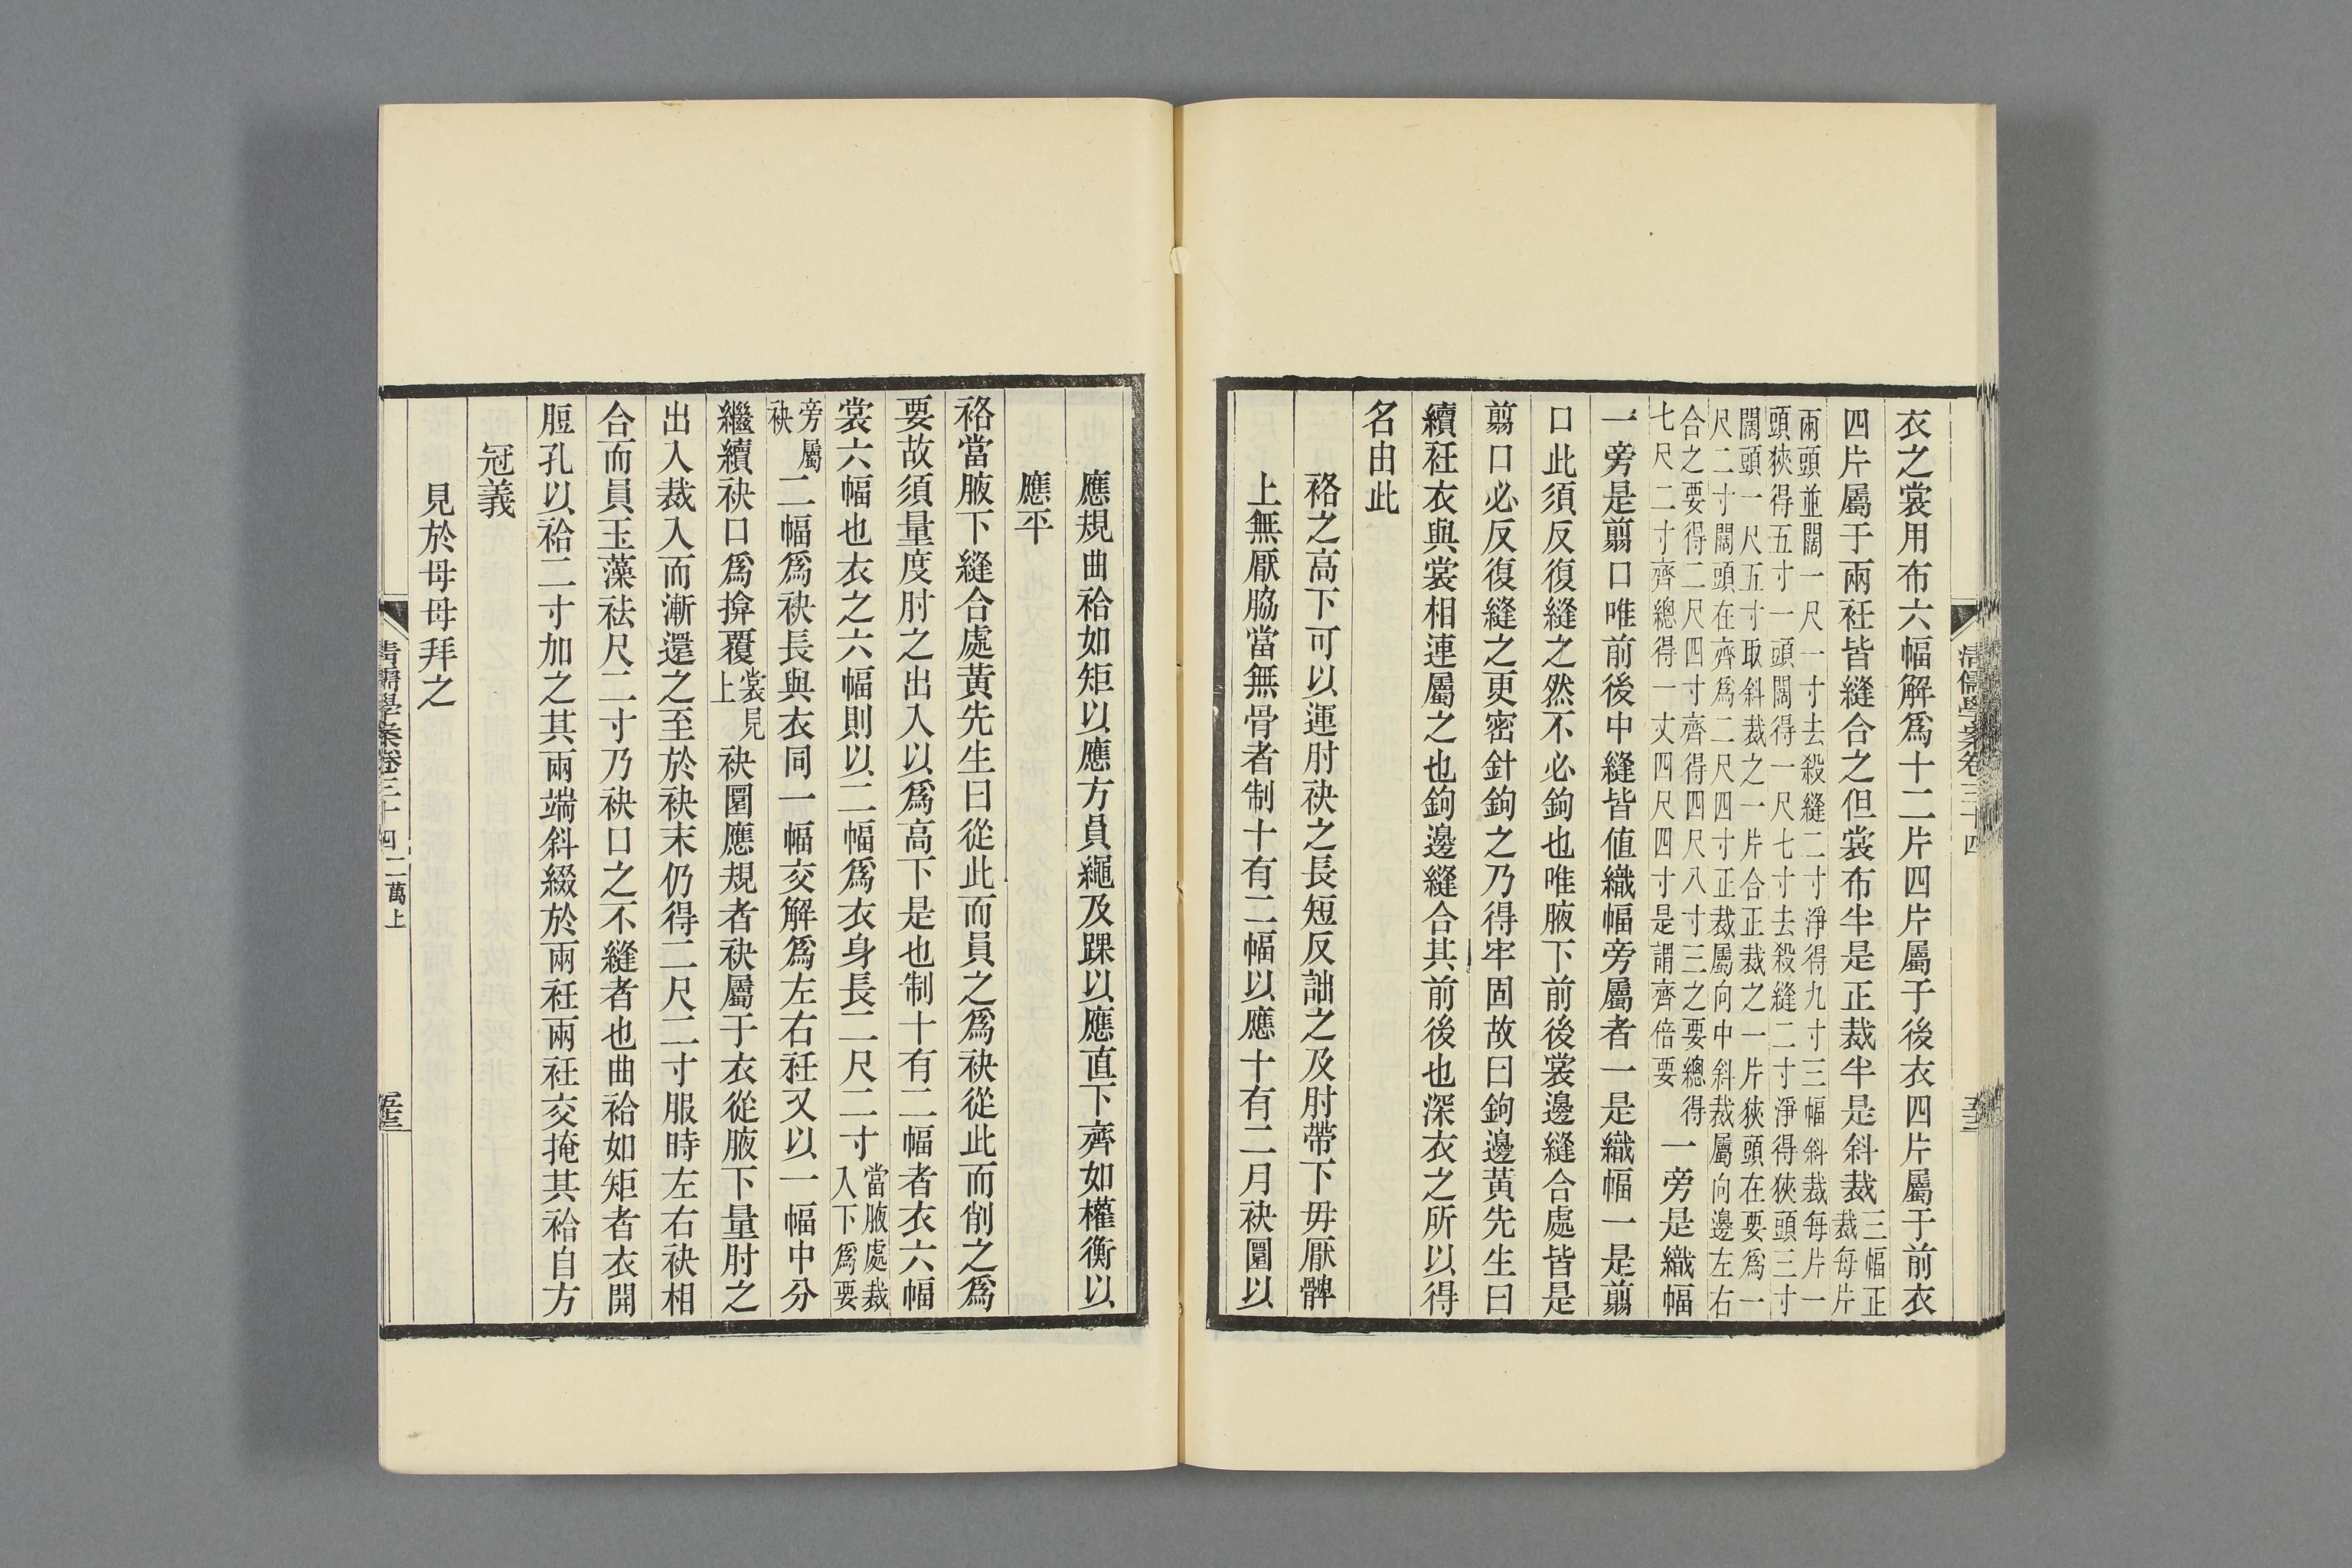 清儒學案卷三十四
五十二
衣之裳用布六幅解爲十二片四片屬于後衣四片屬于前衣
四片屬于兩衽皆縫合之但裳布半是正裁半是斜裁三幅正
裁每片
兩頭並闊一尺一寸去殺縫二寸淨得九寸三幅斜裁每片一
頭狹得五寸一頭闊得一尺七寸去殺縫二寸淨得狹頭三寸
闊頭一尺五寸取斜裁之一片合正裁之一片狹頭在要爲一
尺二寸闊頭在齊爲二尺四寸正裁屬向中斜裁屬向邊左右
合之要得二尺四寸齊得四尺八寸三之要總得
七尺二寸齊總得一丈四尺四寸是謂齊倍要一旁是織幅
一旁是翦口唯前後中縫皆值織幅旁屬者一是織幅一是翦
口此須反復縫之然不必鉤也唯腋下前後裳邊縫合處皆是
翦口必反復縫之更密針鉤之乃得牢固故曰鉤邊黃先生曰
續衽衣與裳相連屬之也鉤邊縫合其前後也深衣之所以得
名由此
袼之高下可以運肘袂之長短反詘之及肘帶下毋厭髀
上無厭脇當無骨者制十有二幅以應十有二月袂圜以
應規曲袷如矩以應方員繩及踝以應直下齊如權衡以
應平
袼當腋下縫合處黃先生曰從此而員之爲袂從此而削之爲
要故須量度肘之出入以爲高下是也制十有二幅者衣六幅
裳六幅也衣之六幅則以二幅爲衣身長二尺二寸當腋處裁
入下爲要
旁屬
袂二幅爲袂長與衣同一幅交解爲左右衽又以一幅中分
繼續袂口爲揜覆裳見
上袂圜應規者袂屬于衣從腋下量肘之
出入裁入而漸還之至於袂末仍得二尺二寸服時左右袂相
合而員玉藻袪尺二寸乃袂口之不縫者也曲袷如矩者衣開
脰孔以袷二寸加之其兩端斜綴於兩衽兩衽交掩其袷自方
冠義
見於母母拜之
清儒學案卷三十四
二萬上
五十三